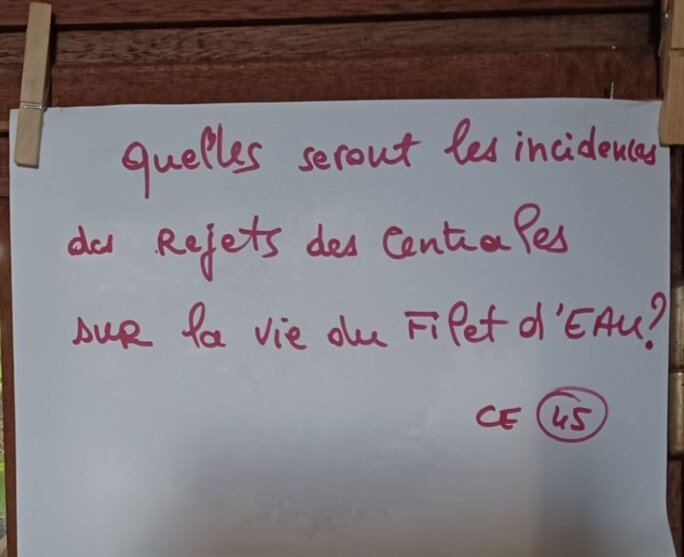 Quelles seront les incidences
des Rejets des Centrales
sur la vie du Filet d'EAU?
CE 45